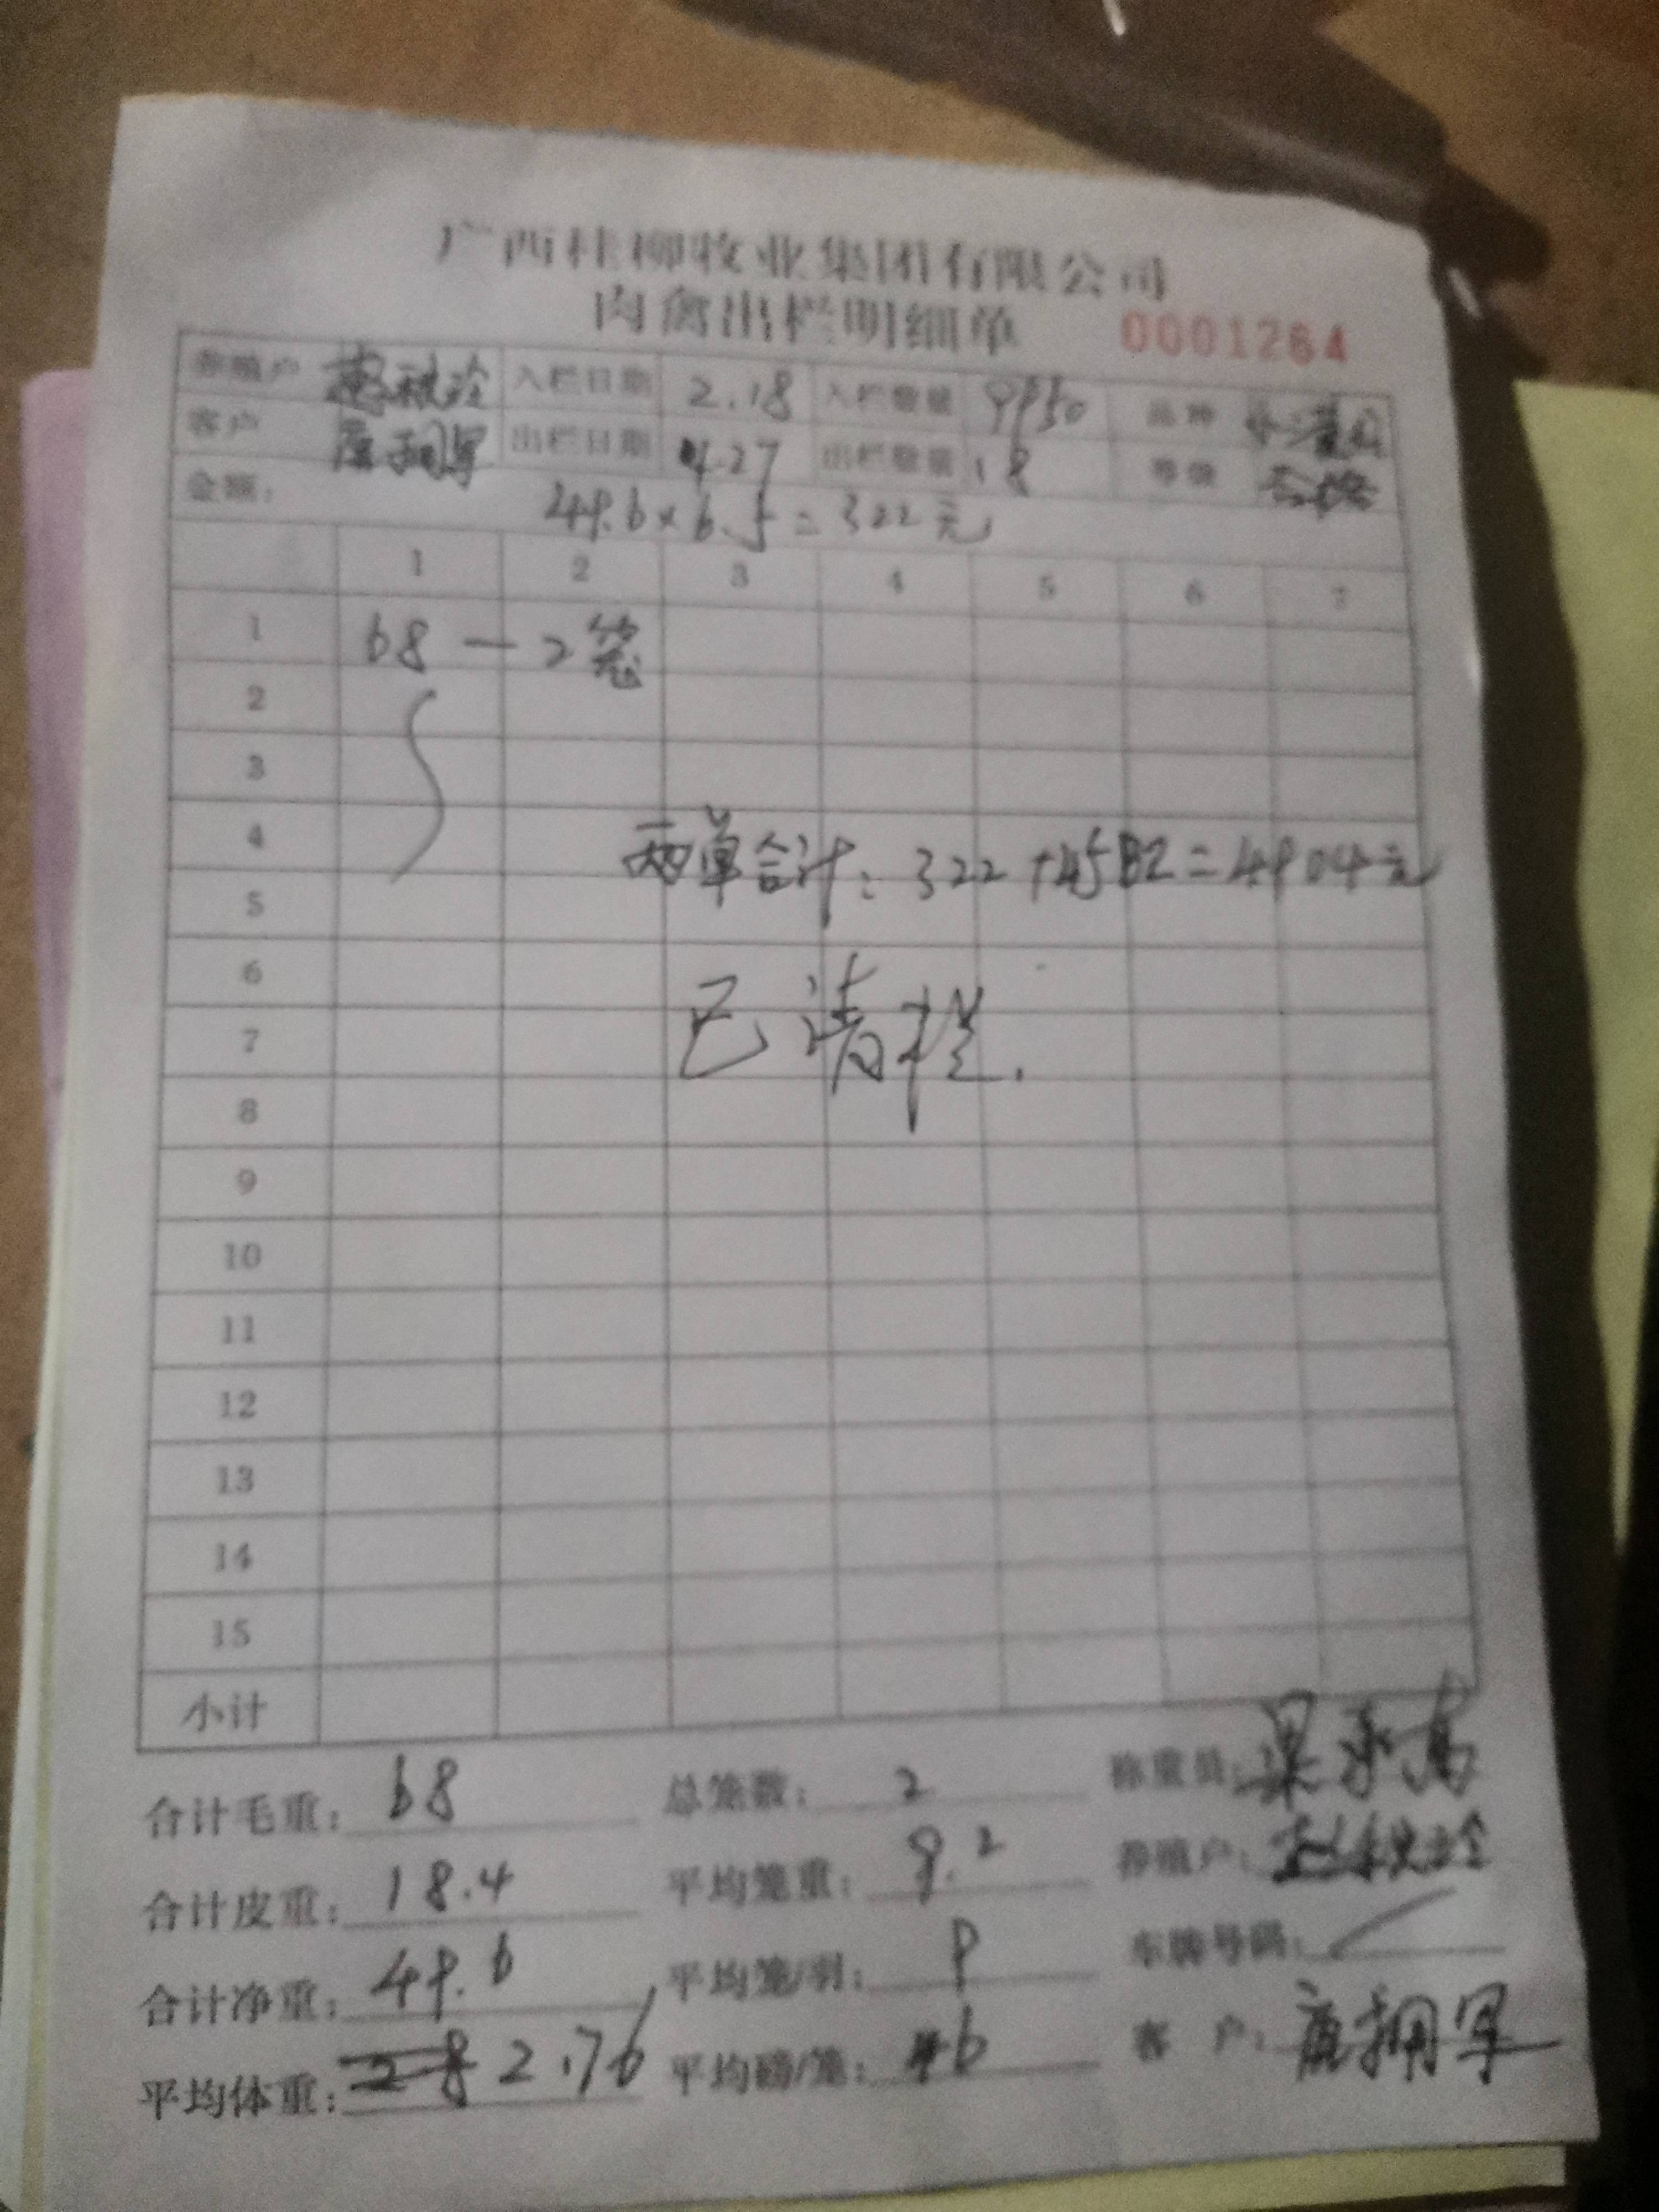 广西桂柳牧业集团有限公司
肉禽出栏明细单 0001264
养殖户 赵秋玲 入栏日期 2.18 入栏数量 9950 品种
客户 唐拥军 出栏日期 4.27 出栏数量 18 等级 合格
金额: 49.6×6.5=322元
1 2 3 4 5 6 7
1 68一2笼
2
3
4
两单合计: 322+4582=4904元
5
6
已清栏.
7
8
9
10
11
12
13
14
15
小计
合计毛重: 68 总笼数: 2 称重员:
合计皮重: 18.4 平均笼重: 9.2 养殖户: 赵秋玲
合计净重: 49.6 平均笼/羽: 9 车牌号码:
平均体重: 2.76 平均磅/笼: 客户: 唐拥军